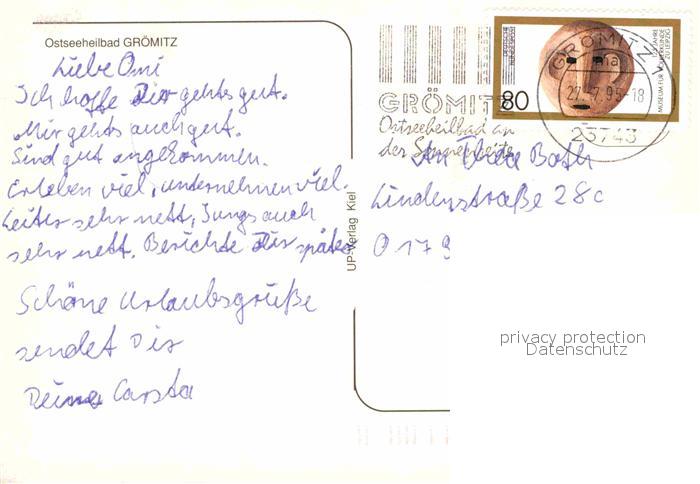 Ostseeheilbad GRÖMITZ
Liebe Omi
Ich hoffe Dir gehts gut.
Mir gehts auch gut.
Sind gut angekommen.
Erleben viel, unternehmen viel.
Leiter sehr nett, Jungs auch
sehr nett. Berichte Dir später
Schöne Urlaubsgrüße
sendet Dir
Deine Carsta
UP-Verlag Kiel
GRÖMITZ
Ostseeheilbad an
der Sonnenseite
DEUTSCHE
BUNDESPOST
80
125 JAHRE
MUSEUM FÜR VÖLKERKUNDE
ZU LEIPZIG
GRÖMITZ
27.-7.95-18
23743
An
Both
Lindenstraße 28c
O 179
privacy protection
Datenschutz